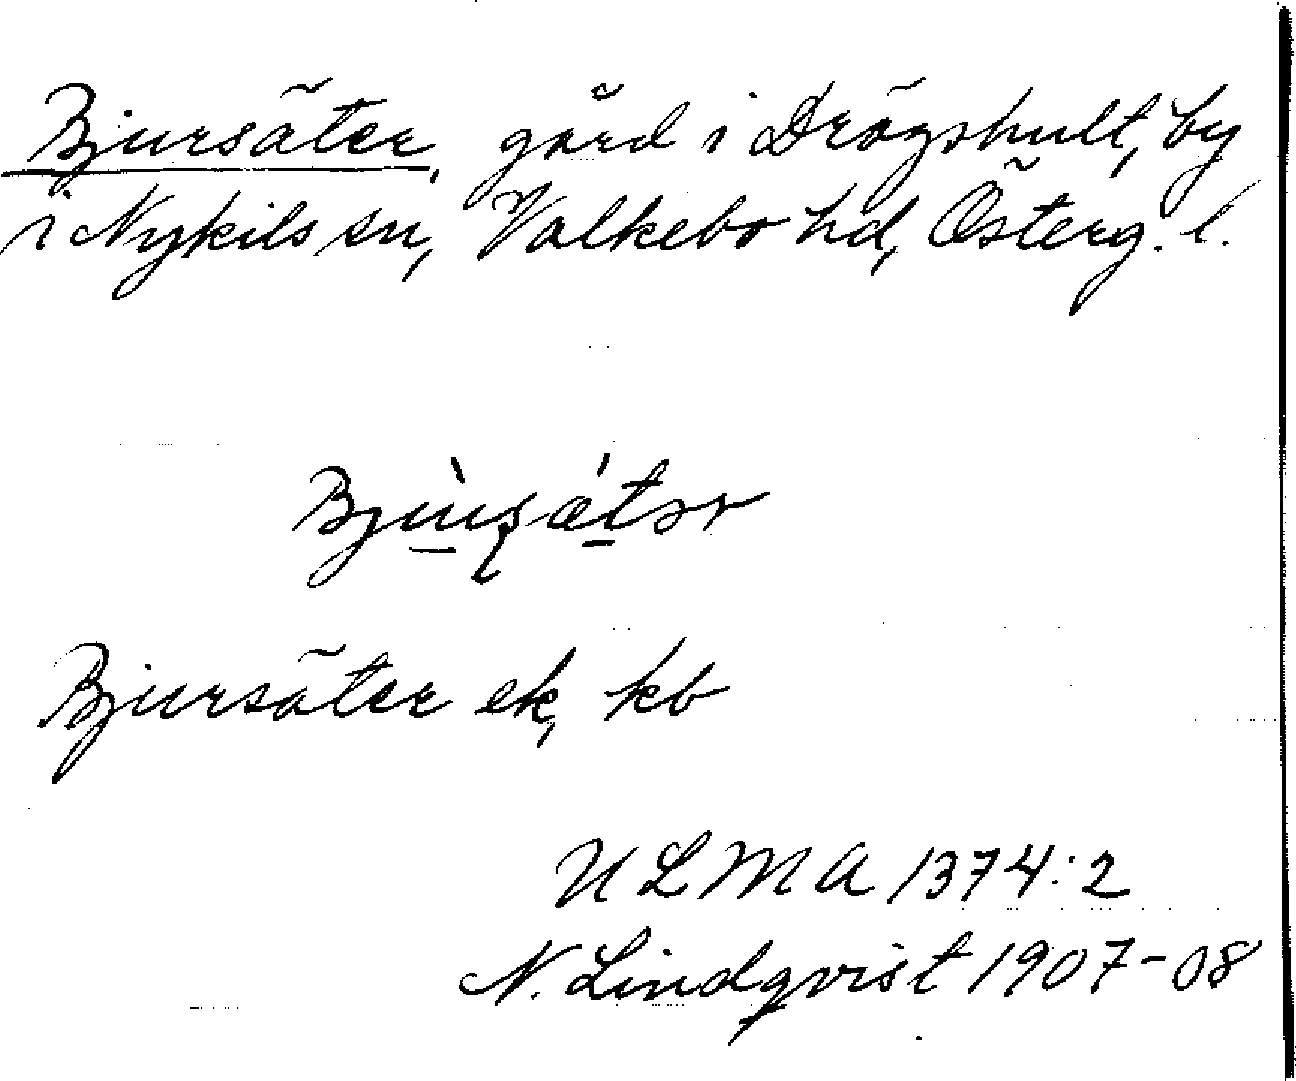 Bjursäter, gård i Drögshult, by
i Nykils sn, Valkebo hd, Österg. l.
Bjursäter ek, kb
ULMA 1374:2
N. Lindqvist 1907-08